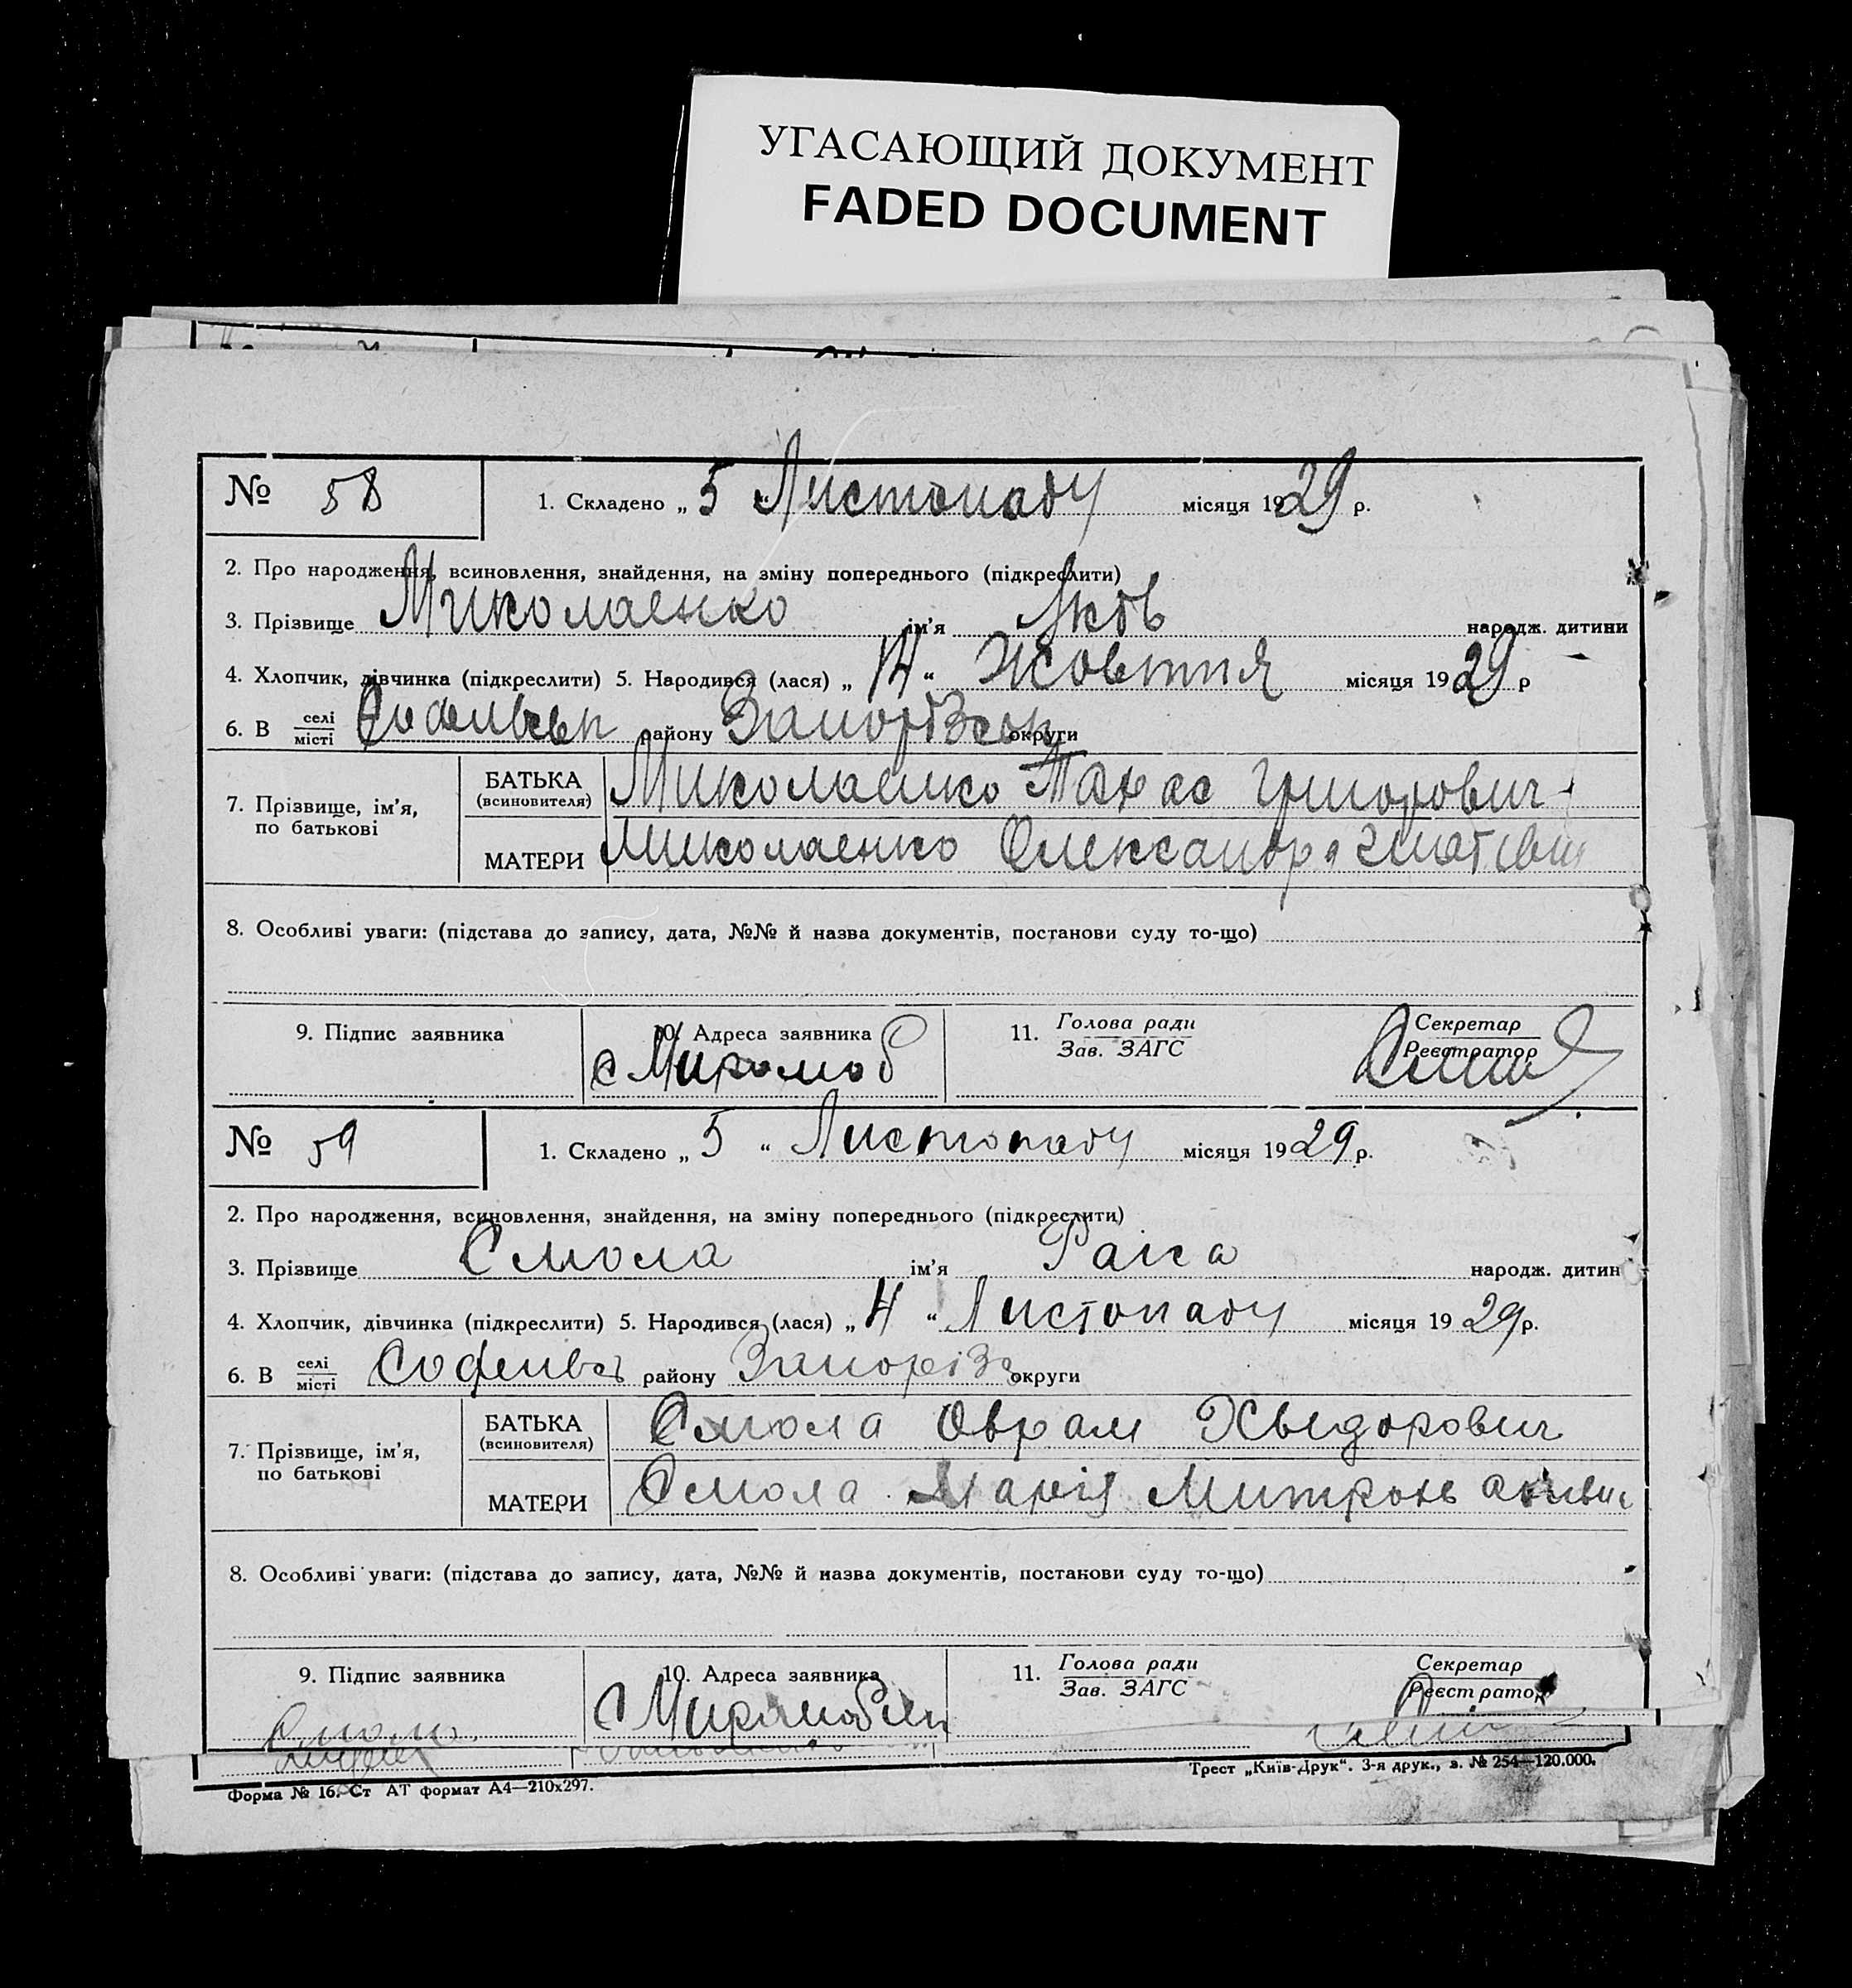 УГАСАЮЩИЙ ДОКУМЕНТ
FADED DOCUMENT
№ 58 1. Складено „ 5 “ Листопаду місяця 1929 р.
2. Про народження, всиновлення, знайдення, на зміну попереднього (підкреслити)
3. Прізвище Миколаенко ім’я Яків народж. дитини
4. Хлопчик, дівчинка (підкреслити) 5. Народився (лася) „ 14 “ Жовтня місяця 1929 р
6. В селі місті району округи
7. Прізвище, ім’я, по батькові
БАТЬКА (всиновителя) Миколаенко Тарас Григорович
МАТЕРИ Миколаенко Олександра
8. Особливі уваги: (підстава до запису, дата, №№ й назва документів, постанови суду то-що)
9. Підпис заявника 10. Адреса заявника 11. Голова ради Зав. ЗАГС Секретар Реєстратор
№ 59 1. Складено „ 5 “ Листопаду місяця 1929 р.
2. Про народження, всиновлення, знайдення, на зміну попереднього (підкреслити)
3. Прізвище Смола ім’я Раіса народж. дитин
4. Хлопчик, дівчинка (підкреслити) 5. Народився (лася) „ 4 “ Листопаду місяця 1929 р.
6. В селі місті району Запоріз округи
7. Прізвище, ім’я, по батькові
БАТЬКА (всиновителя) Смола Оврам Хведорович
МАТЕРИ Смола Марія
8. Особливі уваги: (підстава до запису, дата, №№ й назва документів, постанови суду то-що)
9. Підпис заявника 10. Адреса заявника 11. Голова ради Зав. ЗАГС Секретар Реєстратор
Смола
Форма № 16. Ст АТ формат А4—210х297. Трест „Київ-Друк“. 3-я друк., з. № 254—120.000.